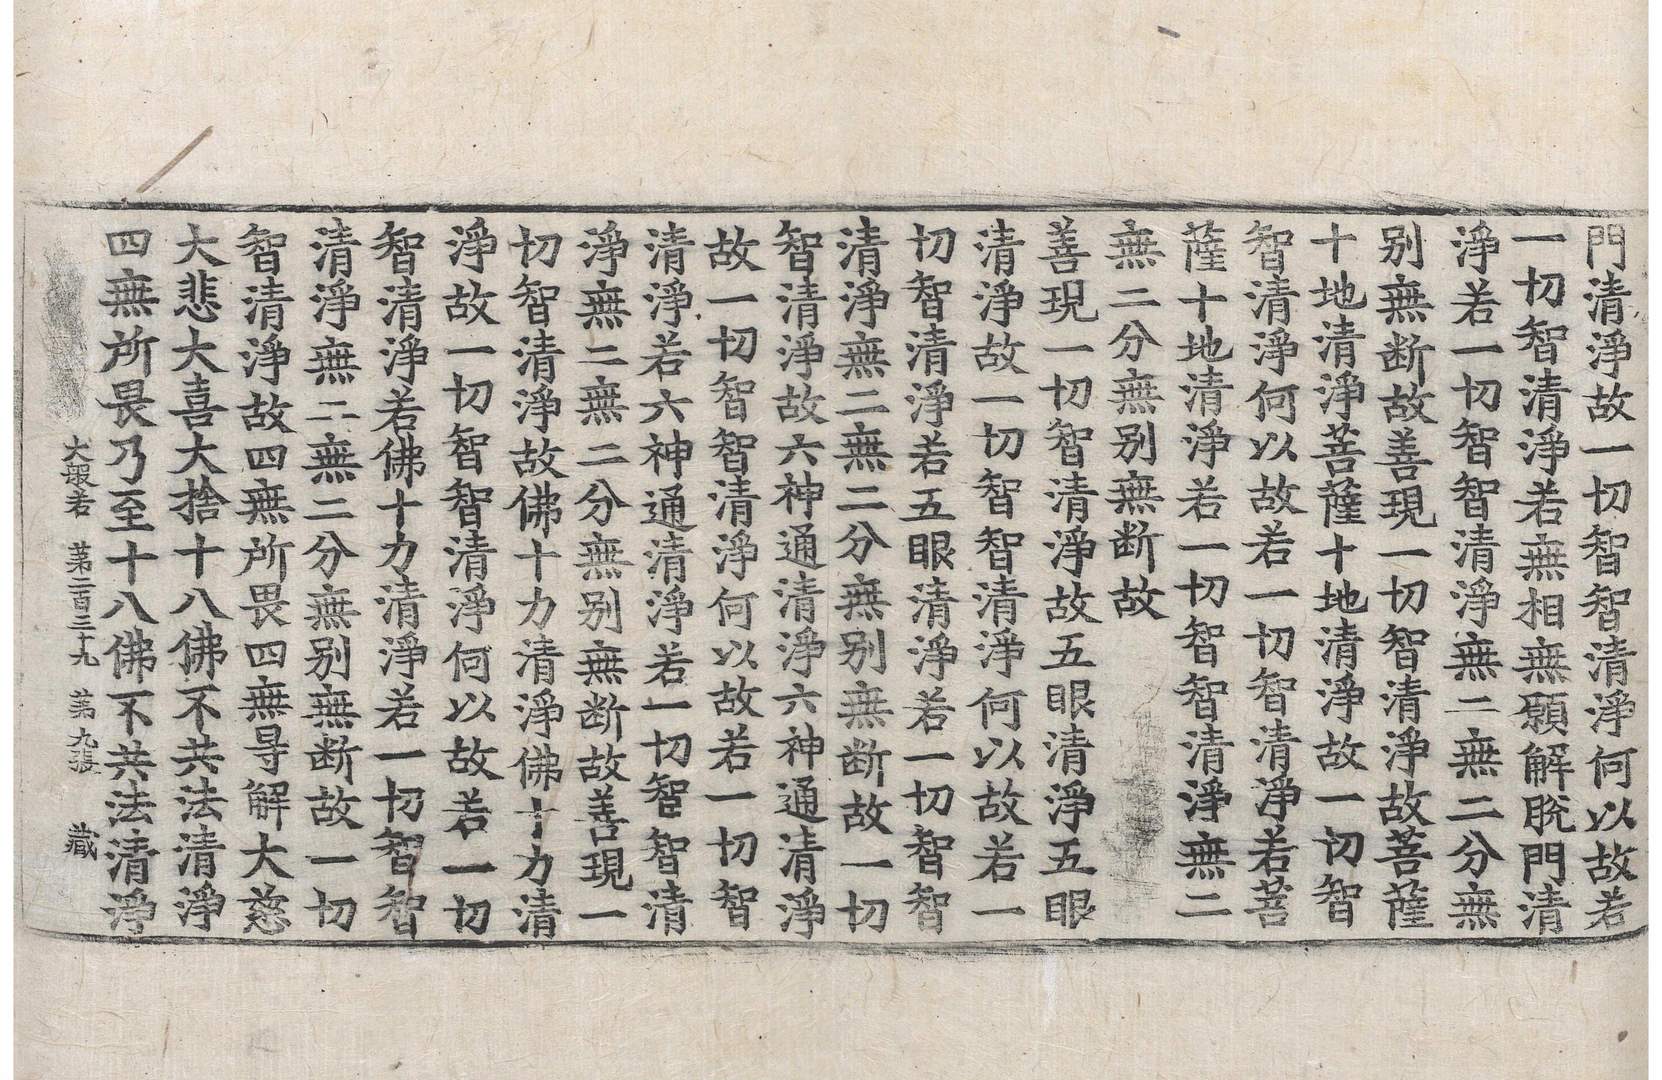 門清淨故一切智智清淨何以故若
一切智清淨若無相無願解脫門清
淨若一切智智清淨無二無二分無
别無断故善現一切智清淨故菩薩
十地清淨菩薩十地清淨故一切智
智清淨何以故若一切智清淨若菩
薩十地清淨若一切智智清淨無二
無二分無别無断故
善現一切智清淨故五眼清淨五眼
清淨故一切智智清淨何以故若一
切智清淨若五眼清淨若一切智智
清淨無二無二分無别無断故一切
智清淨故六神通清淨六神通清淨
故一切智智清淨何以故若一切智
清淨若六神通清淨若一切智智清
淨無二無二分無别無断故善現一
切智清淨故佛十力清淨佛十力清
淨故一切智智清淨何以故若一切
智清淨若佛十力清淨若一切智智
清淨無二無二分無别無断故一切
智清淨故四無所畏四無㝵解大慈
大悲大喜大捨十八佛不共法清淨
四無所畏乃至十八佛不共法清淨
大般若 第二百三十九 第九張 藏